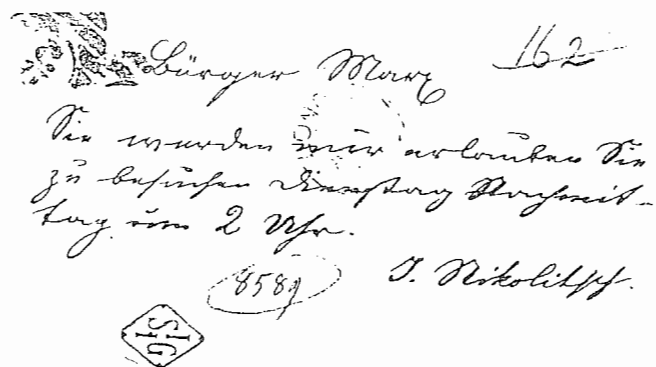 162
Bürger Marx
Sie werden mir erlauben Sie
zu besuchen Dienstag Nachmit-
tag um 2 Uhr.
J. Nikolitsch.
8589